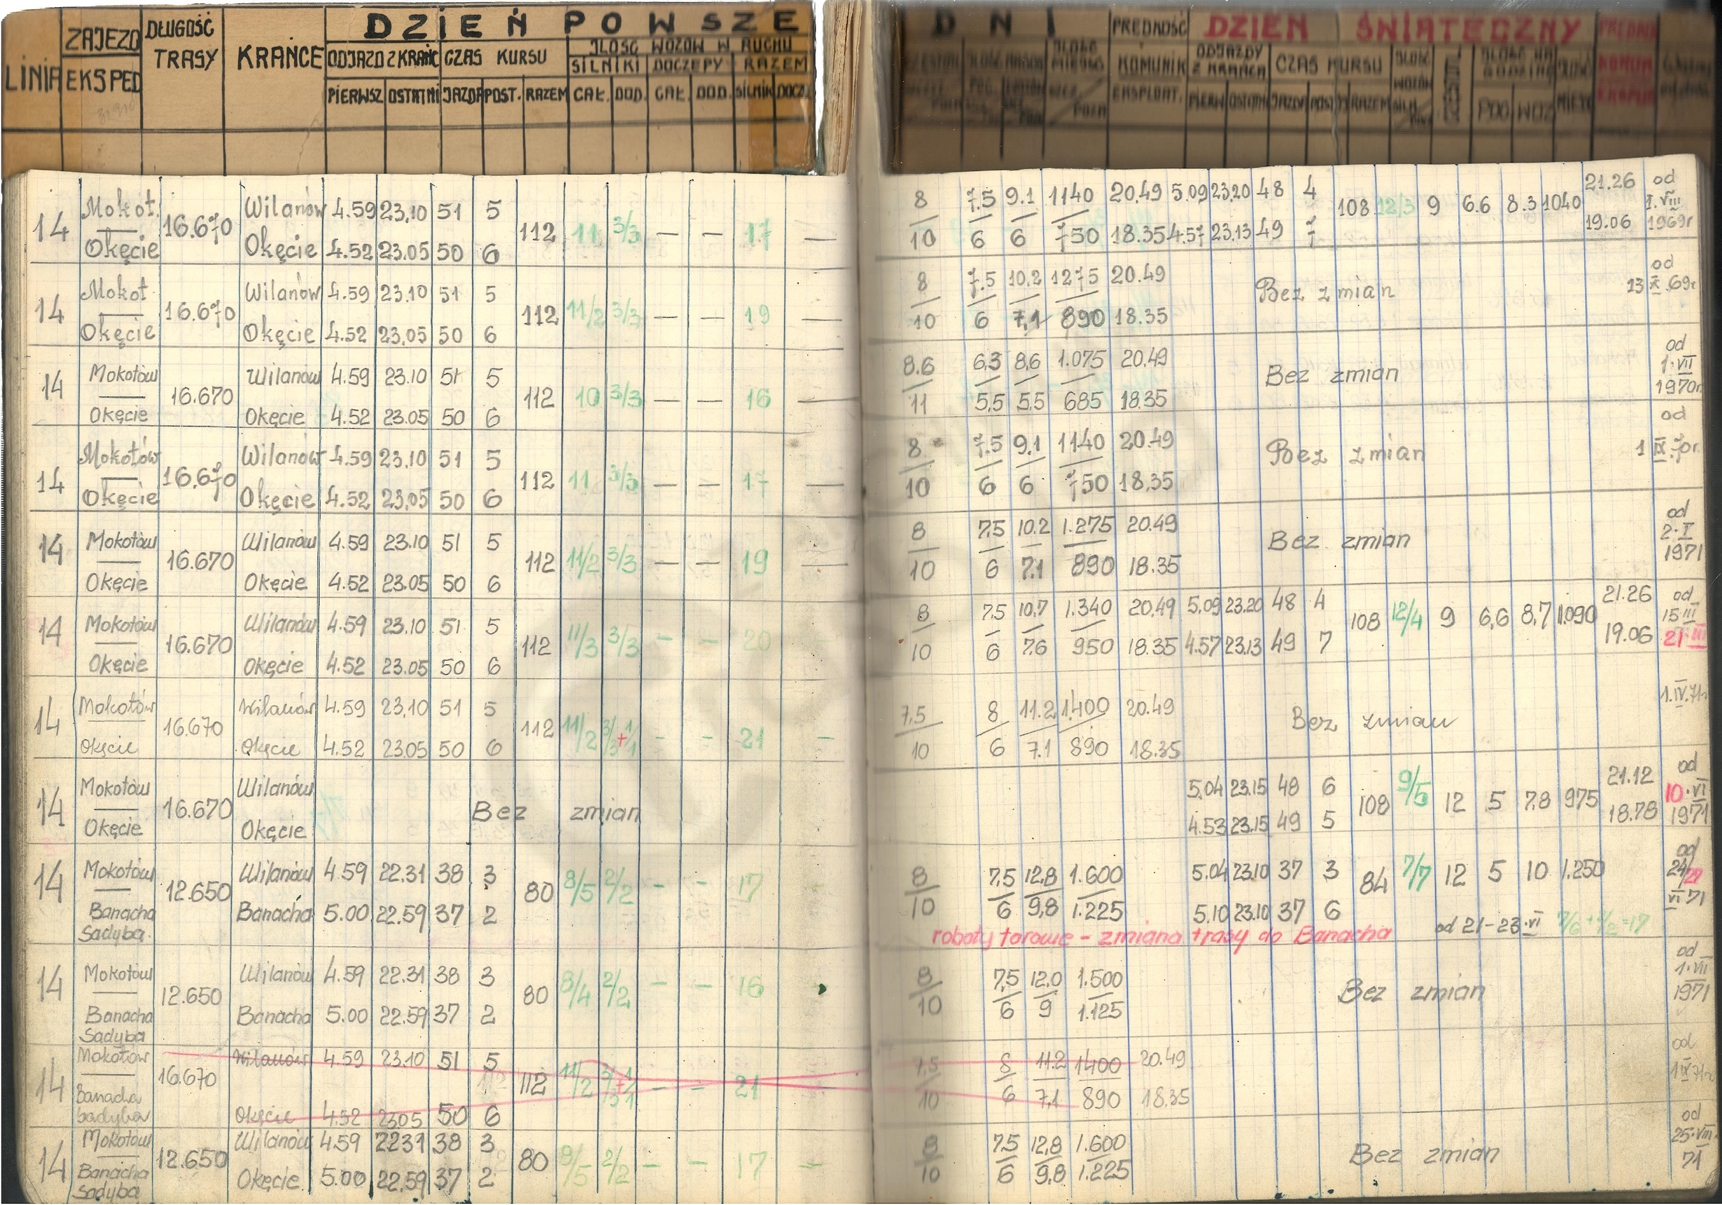 DZIEŃ POWSZE DNI
DZIEŃ ŚWIĄTECZNY
LINIA ZAJEZD EKSPED DŁUGOŚĆ TRASY KRAŃCE ODJAZD Z KRAŃC CZAS KURSU ILOŚĆ WOZÓW W RUCHU
SILNIKI DOCZEPY RAZEM
PIERWSZ OSTATNI JAZDA POST. RAZEM CAŁ. DOD. CAŁ. DOD. SILNIK. DOCZ.
PRĘDKOŚĆ KOMUNIK EKSPLOAT. ODJAZDY Z KRAŃCA CZAS KURSU
14 Mokot. 16.670 Wilanów 4.59 23.10 51 5 112 11 3/3 — — 17 — 8 7.5 9.1 1140 20.49 5.09 23.20 48 4 108 12/3 9 6.6 8.3 1040 21.26 od 1.VIII
Okęcie Okęcie 4.52 23.05 50 6 10 6 6 750 18.35 4.57 23.13 49 7 19.06 1969r
14 Mokot 16.670 Wilanów 4.59 23.10 51 5 112 11/2 3/3 — — 19 — 8 7.5 10.2 1275 20.49 Bez zmian od
Okęcie Okęcie 4.52 23.05 50 6 10 6 7,1 890 18.35 13 X.69r
14 Mokotów 16.670 Wilanów 4.59 23.10 51 5 112 10 3/3 — — 16 — 8.6 6,3 8,6 1.075 20.49 Bez zmian od 1.VII
Okęcie Okęcie 4.52 23.05 50 6 11 5,5 5,5 685 18.35 1970r
14 Mokotów 16.670 Wilanów 4.59 23.10 51 5 112 11 3/3 — — 17 — 8 7.5 9.1 1140 20.49 Bez zmian od
Okęcie Okęcie 4.52 23.05 50 6 10 6 6 750 18.35 1 IX.70r.
14 Mokotów 16.670 Wilanów 4.59 23.10 51 5 112 11/2 3/3 — — 19 — 8 7.5 10.2 1.275 20.49 Bez zmian od 2.I
Okęcie Okęcie 4.52 23.05 50 6 10 6 7.1 890 18.35 1971
14 Mokotów 16.670 Wilanów 4.59 23.10 51 5 112 11/3 3/3 — — 20 — 8 7.5 10,7 1.340 20,49 5.09 23.20 48 4 108 12/4 9 6,6 8,7 1.090 21.26 od 15 III
Okęcie Okęcie 4.52 23.05 50 6 10 6 7.6 950 18.35 4.57 23.13 49 7 19.06 21 III
14 Mokotów 16.670 Wilanów 4.59 23,10 51 5 112 11/2 3/3 +1/1 - - 21 - 7,5 8 11.2 1.400 20.49 Bez zmian 1.IV.71r
Okęcie Okęcie 4.52 23.05 50 6 10 6 7.1 890 18.35
14 Mokotów 16.670 Wilanów Bez zmian 5.04 23.15 48 6 108 9/5 12 5 7.8 975 21.12 od 10.VI
Okęcie Okęcie 4.53 23.15 49 5 18.78 1971
14 Mokotów 12.650 Wilanów 4.59 22.31 38 3 80 8/5 2/2 - - 17 - 8 7,5 12,8 1.600 5.04 23.10 37 3 84 7/7 12 5 10 1.250 od
Banacha Sadyba Banacha 5.00 22.59 37 2 10 6 9,8 1.225 5.10 23.10 37 6 VI 71
roboty torowe - zmiana trasy do Banacha od 21-23.VI
14 Mokotów 12.650 Wilanów 4.59 22.31 38 3 80 8/4 2/2 - - 16 - 8 7,5 12,0 1.500 Bez zmian od 1.VII
Banacha Sadyba Banacha 5.00 22.59 37 2 10 6 9 1.125 1971
14 Mokotów 16.670 Wilanów 4.59 23.10 51 5 112 11/2 3/3 +1/1 - - 21 - 7,5 8 11.2 1400 20.49 od
Banacha Sadyba Okęcie 4.52 23.05 50 6 10 6 7,1 890 18.35
14 Mokotów 12.650 Wilanów 4.59 22.31 38 3 80 8/5 2/2 - - 17 - 8 7.5 12,8 1.600 Bez zmian od 25.VIII
Banacha Sadyba Okęcie 5.00 22.59 37 2 10 6 9,8 1.225 71